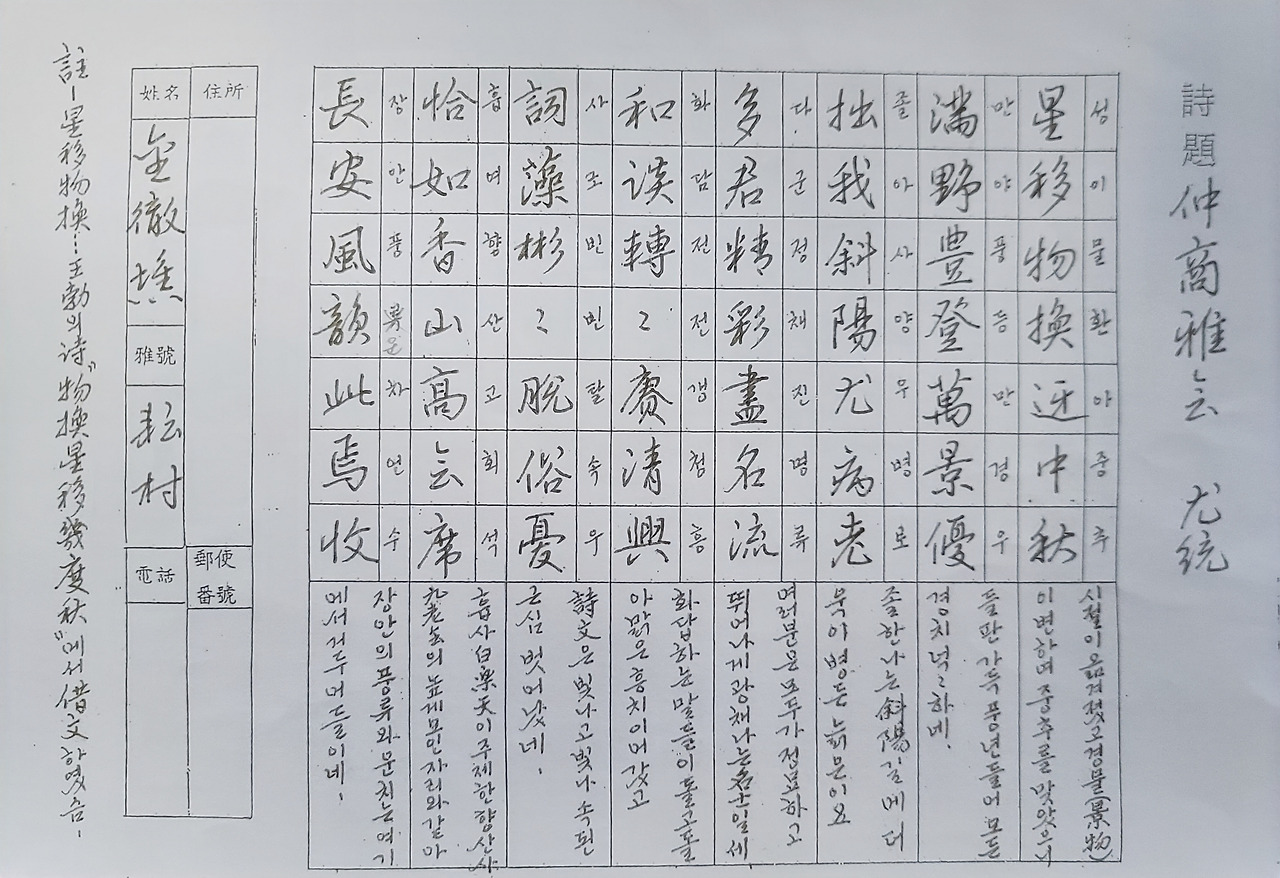 詩題 仲商雅会 尤統
星移物換迓中秋
성이물환아중추
시절이 옮겨졌고 경물(景物)
이 변하며 중추를 맞았으니
滿野豊登萬景優
만야풍등만경우
들판 가득 풍년들어 모든
경치 넉넉하네.
拙我斜陽尤病老
졸아사양우병로
졸한 나는 斜陽길에 더
욱이 병든 늙은이요
多君精彩盡名流
다군정채진명류
여러분은 모두가 정묘하고
뛰어나게 광채나는 名士일세
和談轉〻賡清興
화담전전갱청흥
화답하는 말들이 돌고 돌
아 맑은 흥치 이어갔고
詞藻彬〻脫俗憂
사조빈빈탈속우
詩文은 빛나고 빛나 속된
근심 벗어났네.
恰如香山高会席
흡여향산고회석
흡사 白樂天이 주제한 향산사
九老会의 높게 모인 자리와 같아
長安風韻此焉收
장안풍운차언수
장안의 풍류와 운치는 여기
에서 거두어 들이네.
住所
姓名 金徹
雅號 耘村
郵便番號
電話
註-星移物換…王勃의 诗"物換星移幾度秋"에서 借文하였슴-